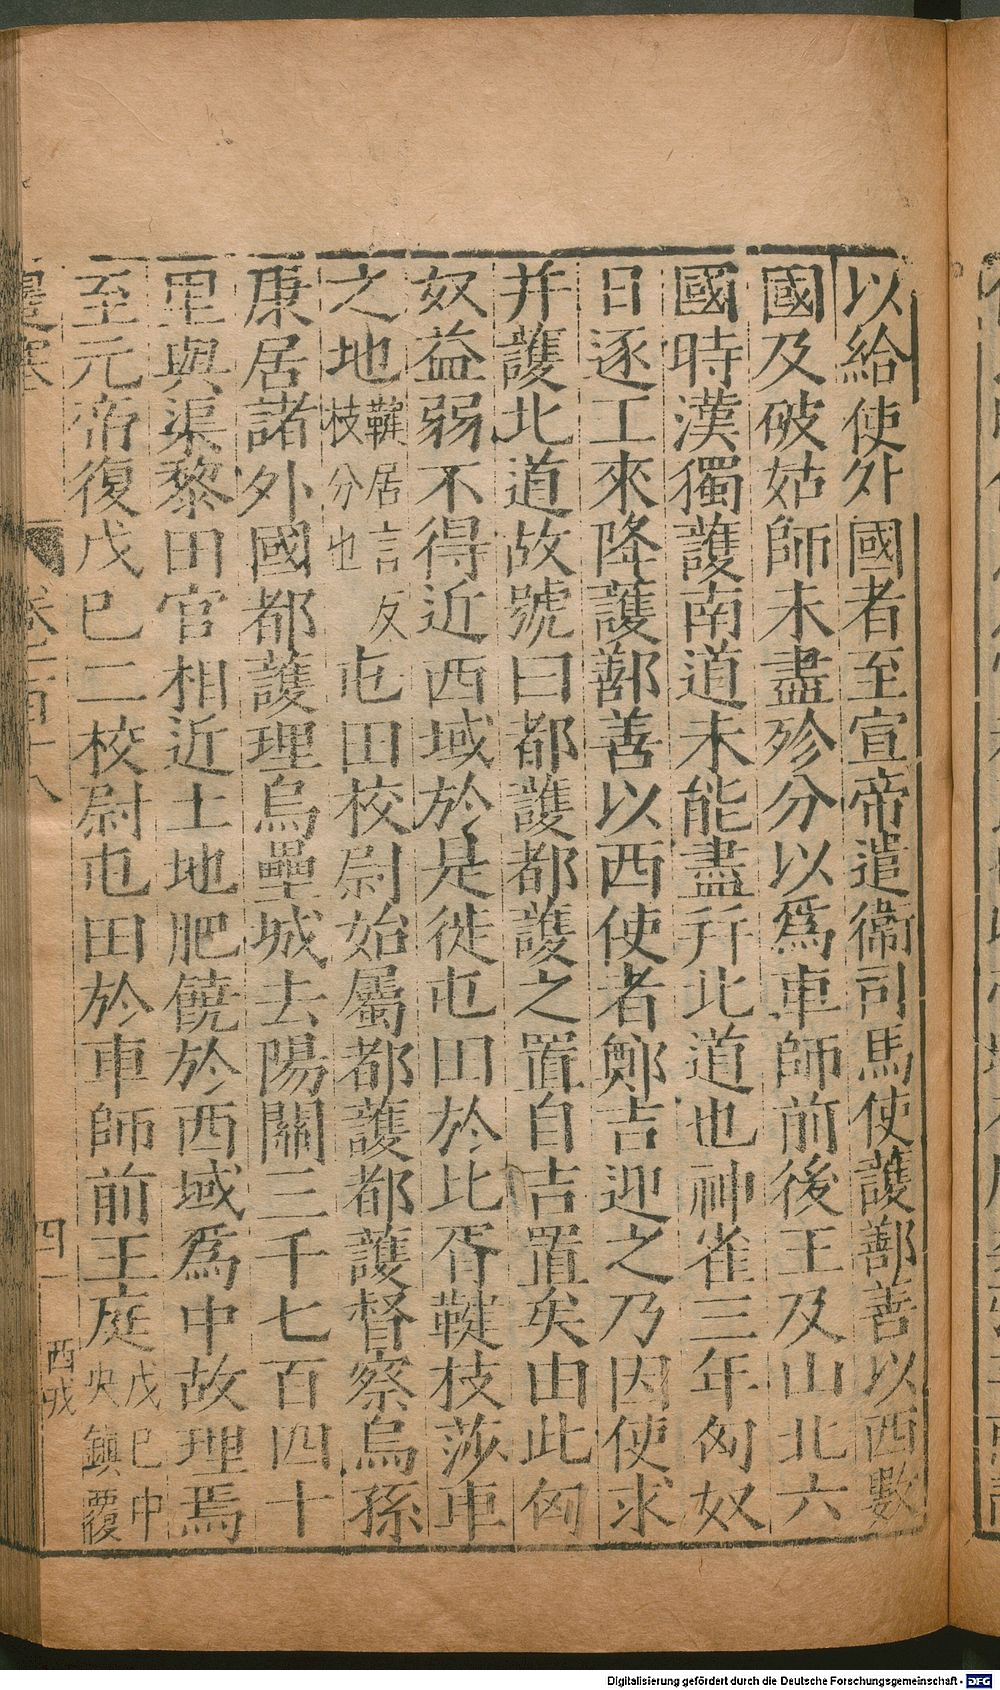 以給使外國者至宣帝遣衞司馬使護鄯善以西數
國及破姑師未盡殄分以爲車師前後王及山北六
國時漢獨護南道未能盡幷北道也神雀三年匈奴
日逐工來降護鄯善以西使者鄭吉迎之乃因使求
幷護北道故號曰都護都護之置自吉置矣由此匈
奴益弱不得近西域於是徙屯田於比胥鞬枝莎車
之地鞬居言反枝分也屯田校尉始屬都護都護督察烏孫
康居諸外國都護理烏壘城去陽關三千七百四十
里與渠黎田官相近土地肥饒於西域爲中故理焉
至元帝復戊巳二校尉屯田於車師前王庭戊巳中央鎭覆
邊塞
卷二百十八
四
西戎
Digitalisierung gefördert durch die Deutsche Forschungsgemeinschaft - DFG